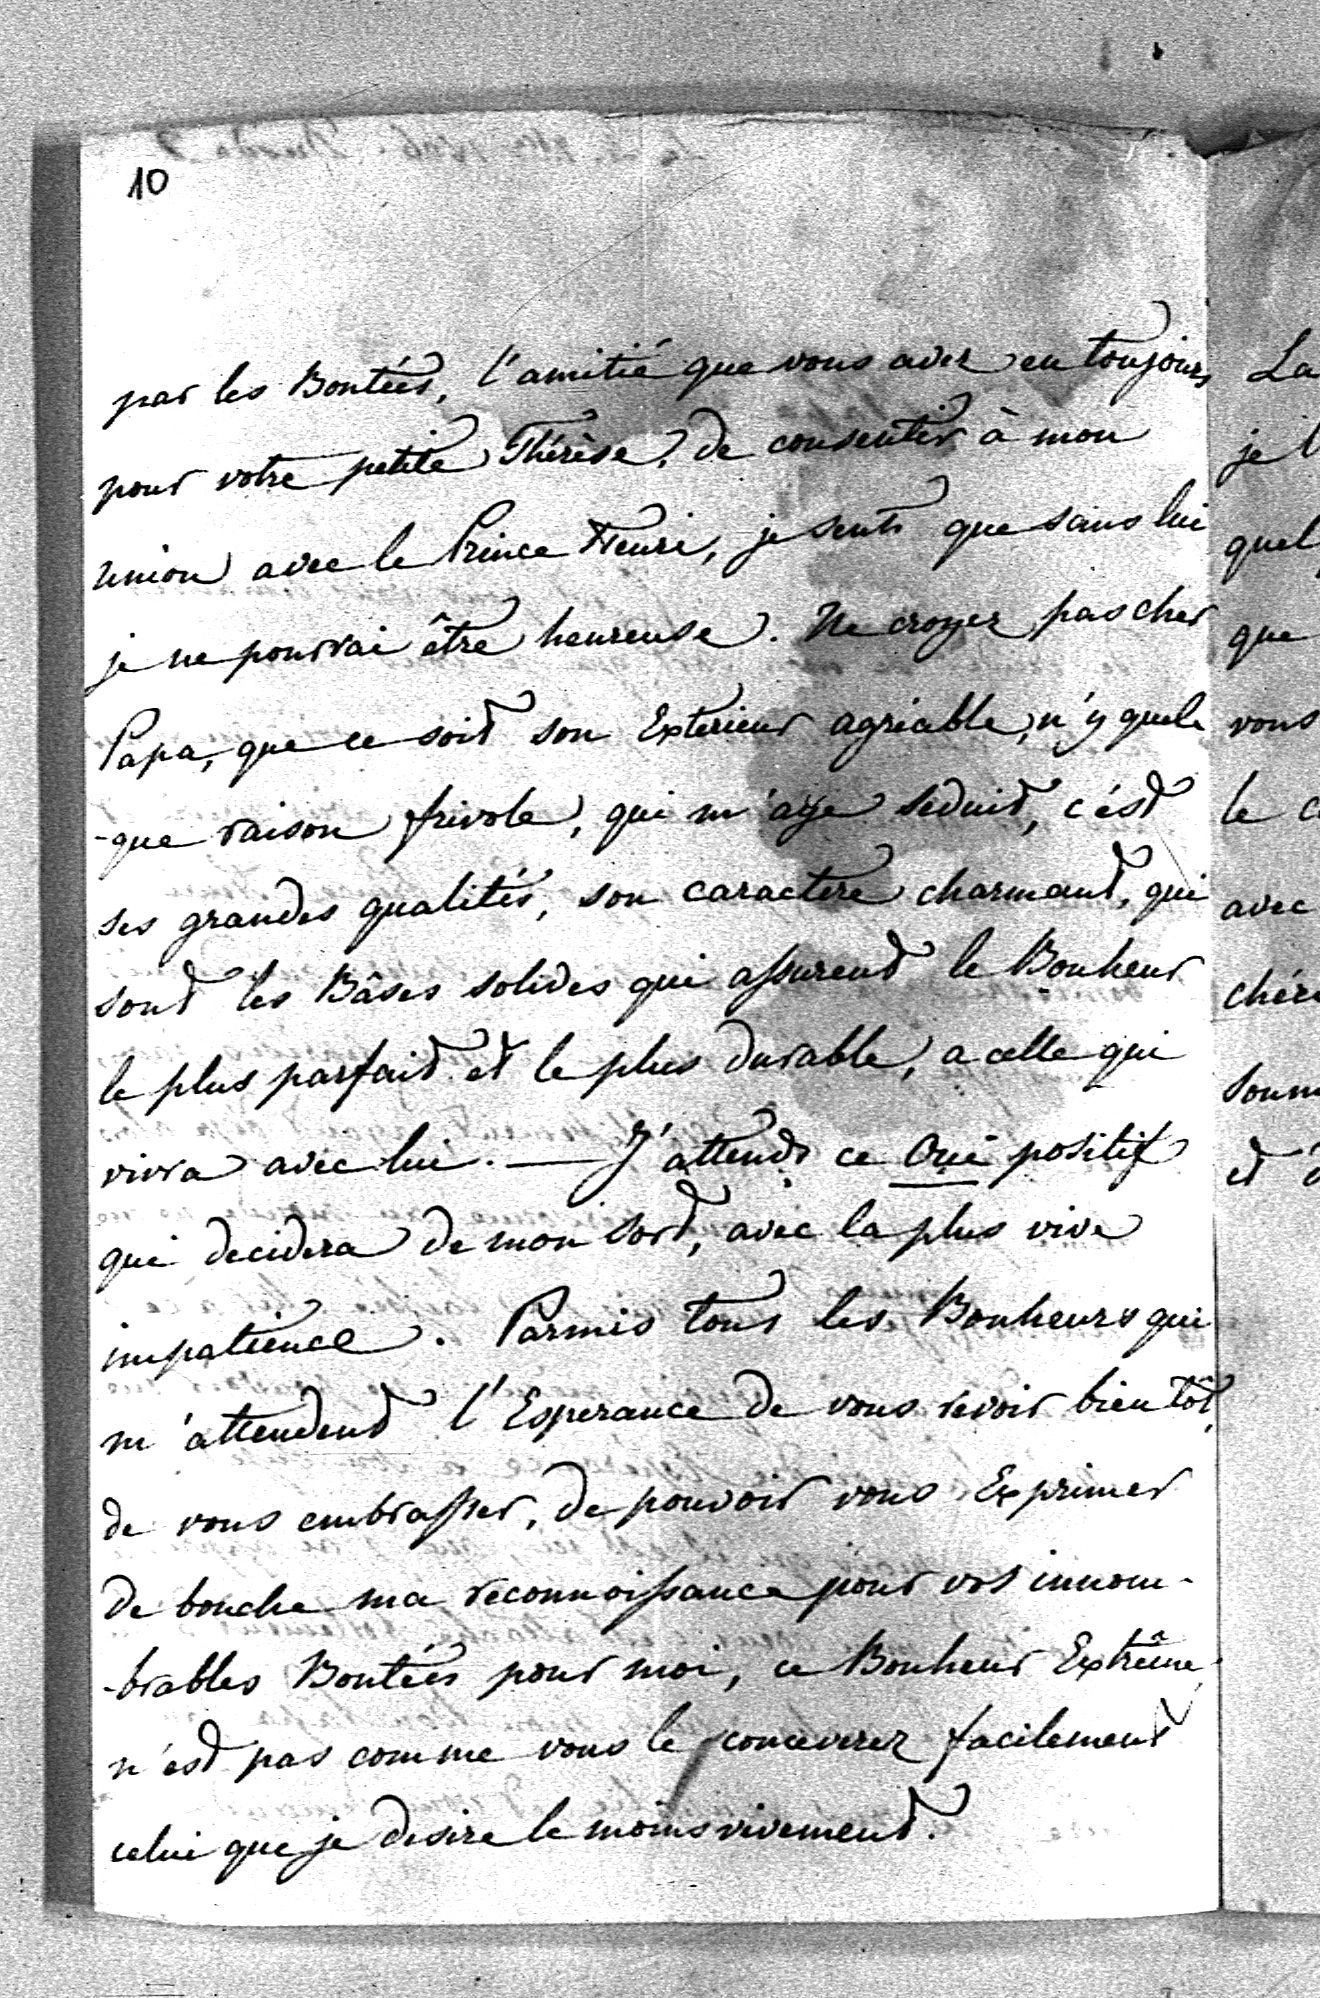 10
par les Bontées, l'amitié que vous avez eu toujours
pour votre petite Thérèse, de consentir à mon
union avec le Prince Henri, je sents que sans lui
je ne pourrai être heureuse. Ne croyez pas cher
Papa, que ce soit son Exterieur agréable, n'y quel-
-que raison frivole, qui m'aye seduit, c'ést
ses grandes qualités, son caractere charmant, qui
sont les Bâses solides qui assurent le Bonheur
le plus parfait et le plus durable, a celle qui
vivra avec lui. — J'attends ce Oui positif
qui decidera de mon sort, avec la plus vive
impatience. Parmis tous les Bonheurs qui
m'attendent l'Esperance de vous revoir bientôt,
de vous embrasser, de pouvoir vous Exprimer
de bouche ma reconnoissance pour vos innom-
-brables Bontées pour moi, ce Bonheur Extrême
n'est pas comme vous le conceverez facilement
celui que je desire le moins vivement.
La
je
quel
que
vous
le
avec
chéri
soum
et